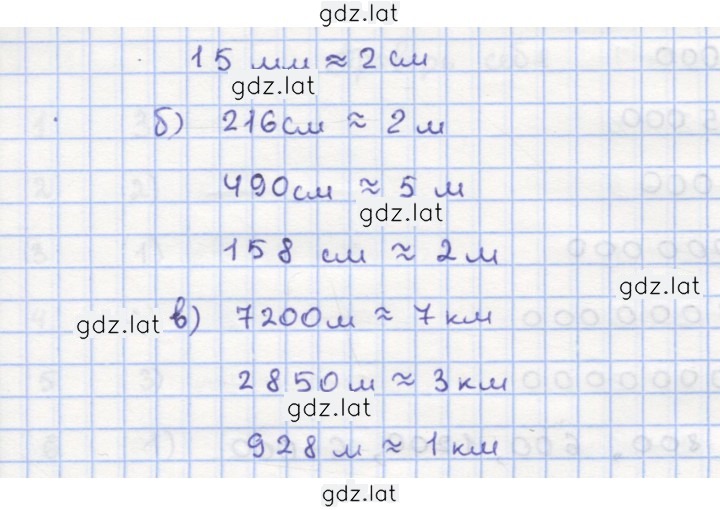 gdz.lat
15 мм ≈ 2 см
gdz.lat
б) 216см ≈ 2 м
490см ≈ 5 м
gdz.lat
158 см ≈ 2 м
gdz.lat
gdz.lat в) 7200м ≈ 7 км
2850 м ≈ 3 км
gdz.lat
928 м ≈ 1 км
gdz.lat